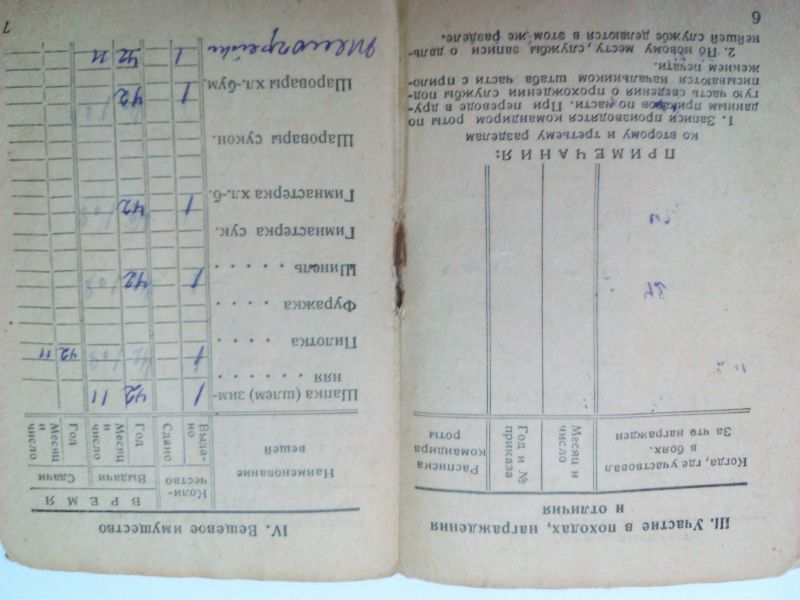 III. Участие в походах, награждения
и отличия
Когда, где участвовал
в боях.
За что награжден
Месяц и
число
Год и №
приказа
Расписка
командира
роты
ПРИМЕЧАНИЯ:
ко второму и третьему разделам
1. Записи производятся командиром роты по
данным приказов по части. При переводе в дру-
гую часть сведения о прохождении службы под-
писываются начальником штаба части с прило-
жением печати.
2. По новому месту службы записи о даль-
нейшей службе делаются в этом же разделе.
6
IV. Вещевое имущество
Наименование
вещей
Коли-
чество
ВРЕМЯ
Выдачи
Сдачи
Выда-
но
Сдано
Год
Месяц
и
число
Год
Месяц
и
число
Шапка (шлем) зим- 1 42 11
няя . . . . . .
Пилотка . . . . 1 42 11
Фуражка . . . .
Шинель . . . . . 1 42
Гимнастерка сук.
Гимнастерка хл.-б. 1 42
Шаровары сукон.
Шаровары хл.-бум. 1 42
Телогрейка 1 42 11
7